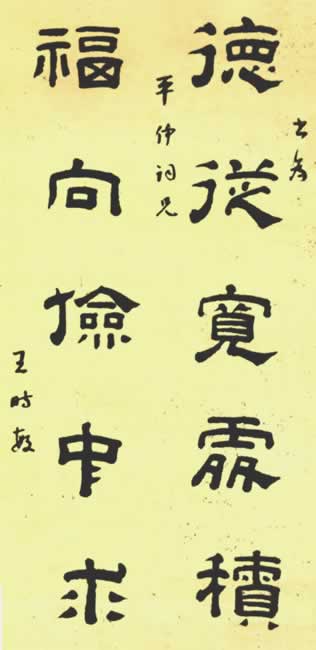 書為
德從寬處積
平仲詞兄
福向儉中求
王時敏